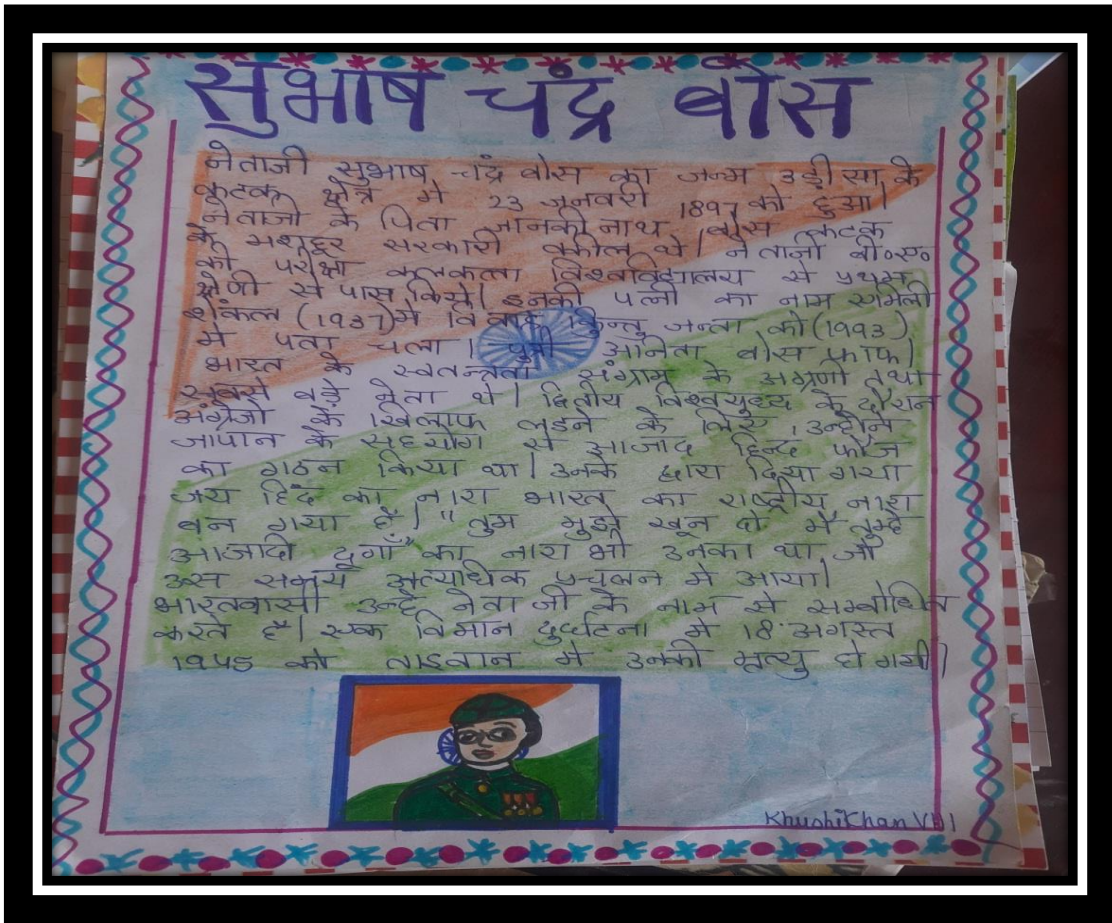 सुभाष चंद्र बोस
नेताजी सुभाष चंद्र बोस का जन्म उड़ीसा के
कटक क्षेत्र मे 23 जनवरी 1897 को हुआ।
नेताजी के पिता जानकी नाथ बोस कटक
के मशहूर सरकारी वकील थे। नेताजी बी०ए०
की परीक्षा कलकत्ता विश्वविद्यालय से प्रथम
श्रेणी से पास किये। इनकी पत्नी का नाम एमिली
शेंकल (1937) में विवाह किन्तु जन्ता को (1993)
मे पता चला। पुत्री अनिता बोस फाफ।
भारत के स्वतन्त्रता संग्राम के अग्रणी तथा
सबसे बड़े नेता थे। द्वितीय विश्वयुद्ध के दौरान
अंग्रेजो के खिलाफ लड़ने के लिए, उन्होंने
जापान के सहयोग से आजाद हिन्द फौज
का गठन किया था। उनके द्वारा दिया गया
जय हिंद का नारा भारत का राष्ट्रीय नारा
बन गया है। "तुम मुझे खून दो मैं तुम्हे
आजादी दूगाँ" का नारा भी उनका था जो
उस समय अत्याधिक प्रचलन मे आया।
भारतवासी उन्हे नेता जी के नाम से सम्बोधित
करते है। एक विमान दुर्घटना मे 18 अगस्त
1945 को ताइवान मे उनकी मृत्यु हो गयी।
Khushi Khan VIII